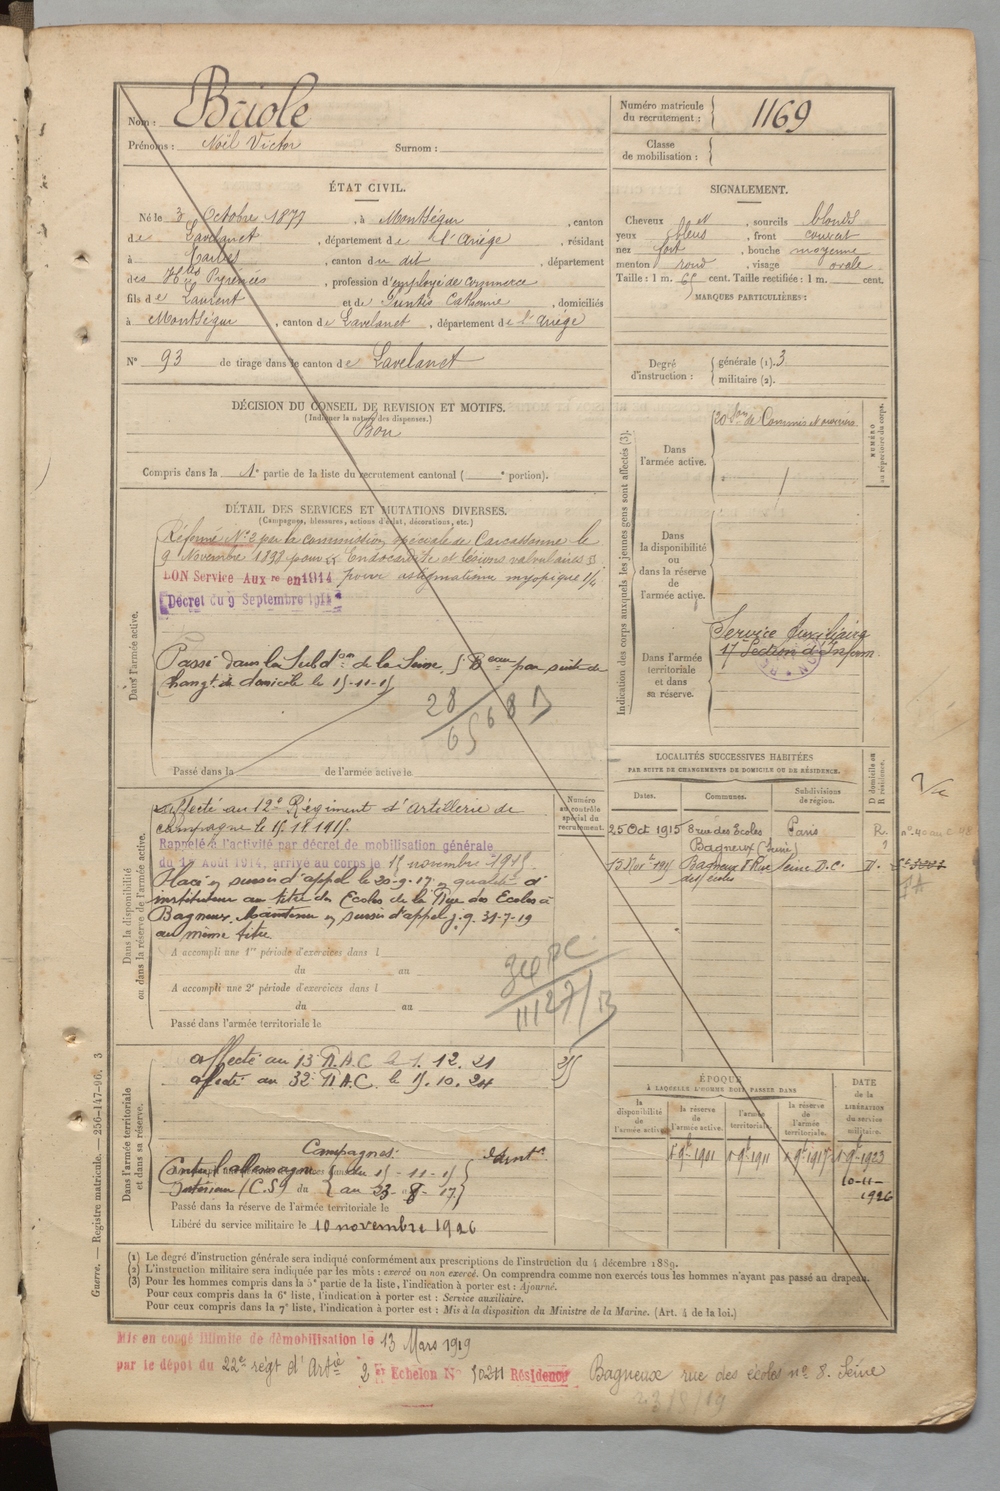 Nom : Briole
Prénoms : Noël Victor Surnom :
Numéro matricule du recrutement : 1169
Classe de mobilisation :
ÉTAT CIVIL.
Né le 3 Octobre 1877, à Montségur, canton
de Lavelanet, département de l'Ariège, résidant
à Tarbes, canton du dit, département
des Htes Pyrénées, profession d'employé de commerce
fils de Laurent et de Catherine, domiciliés
à Montségur, canton de Lavelanet, département de l'Ariège
N° 93 de tirage dans le canton de Lavelanet
SIGNALEMENT.
Cheveux et, sourcils blonds
yeux bleus, front couvert
nez fort, bouche moyenne
menton rond, visage ovale
Taille : 1 m. 65 cent. Taille rectifiée : 1 m. cent.
MARQUES PARTICULIÈRES :
Degré d'instruction : générale (1). 3
militaire (2).
DÉCISION DU CONSEIL DE REVISION ET MOTIFS.
(Indiquer la nature des dispenses.)
Bon
Compris dans la 1e partie de la liste du recrutement cantonal ( e portion).
DÉTAIL DES SERVICES ET MUTATIONS DIVERSES.
(Campagnes, blessures, actions d'éclat, décorations, etc.)
Dans l'armée active.
Réformé N°2 par la commission spéciale de Carcassonne le
9 Novembre 1898 pour Endocardite et lésions valvulaires
BON Service Aux re en 1914 pour astigmatisme myopique
Décret du 9 Septembre 1914
Passé dans la Subdon de la Seine, 5e Beau par suite de
changt de domicile le 15-11-15
28
65 68 D
Passé dans la de l'armée active le
Indication des corps auxquels les jeunes gens sont affectés (3).
NUMÉRO au répertoire du corps.
Dans l'armée active.
20e Son de Commis et ouvriers
Dans la disponibilité ou dans la réserve de l'armée active.
Dans l'armée territoriale et dans sa réserve.
Service Auxiliaire
17e Section d'Infirm
LOCALITÉS SUCCESSIVES HABITÉES
PAR SUITE DE CHANGEMENTS DE DOMICILE OU DE RÉSIDENCE.
Dates. Communes. Subdivisions de région. D domicile ou R résidence.
25 Oct 1915 8 rue des Ecoles Paris R.
Bagneux (Seine)
15 Nov 1915 Bagneux 8 Rue Seine D.
des écoles
Dans la disponibilité ou dans la réserve de l'armée active.
Numéro au contrôle spécial du recrutement.
Affecté au 12e Régiment d'Artillerie de
campagne le 15.11.1915.
Rappelé à l'activité par décret de mobilisation générale
du 1er Août 1914, arrivé au corps le 15 novembre 1915.
Placé en sursis d'appel le 20-9-17 en qualité d'
instituteur au titre des Ecoles de la Rue des Ecoles à
Bagneux. Maintenu en sursis d'appel j. q. 31-7-19
au même titre
A accompli une 1re période d'exercices dans l
du au
A accompli une 2e période d'exercices dans l
du au
Passé dans l'armée territoriale le
11127/B
Dans l'armée territoriale et dans sa réserve.
affecté au 13e R.A.C. le 1. 12. 21
affecté au 32e R.A.C. le 15. 10. 24
Campagnes:
Contre l'allemagne du 15-11-15
Intérieur (C.S) au 23-8-17
Passé dans la réserve de l'armée territoriale le
Libéré du service militaire le 10 novembre 1926
ÉPOQUE
À LAQUELLE L'HOMME DOIT PASSER DANS
la disponibilité de l'armée active. la réserve de l'armée active. l'armée territoriale. la réserve de l'armée territoriale.
DATE de la LIBÉRATION du service militaire.
1 9bre 1901 1 9bre 1911 1 9bre 1917 1 9bre 1923
10-11-1926
(1) Le degré d'instruction générale sera indiqué conformément aux prescriptions de l'instruction du 4 décembre 1889.
(2) L'instruction militaire sera indiquée par les mots : exercé ou non exercé. On comprendra comme non exercés tous les hommes n'ayant pas passé au drapeau.
(3) Pour les hommes compris dans la 5e partie de la liste, l'indication à porter est : Ajourné.
Pour ceux compris dans la 6e liste, l'indication à porter est : Service auxiliaire.
Pour ceux compris dans la 7e liste, l'indication à porter est : Mis à la disposition du Ministre de la Marine. (Art. 4 de la loi.)
Guerre. — Registre matricule. — 256-147-96. 3
Mis en congé illimité de démobilisation le 13 Mars 1919
par le dépôt du 22e régt d'Artie 2 Echelon N° 50211 Résidence Bagneux rue des écoles n° 8. Seine